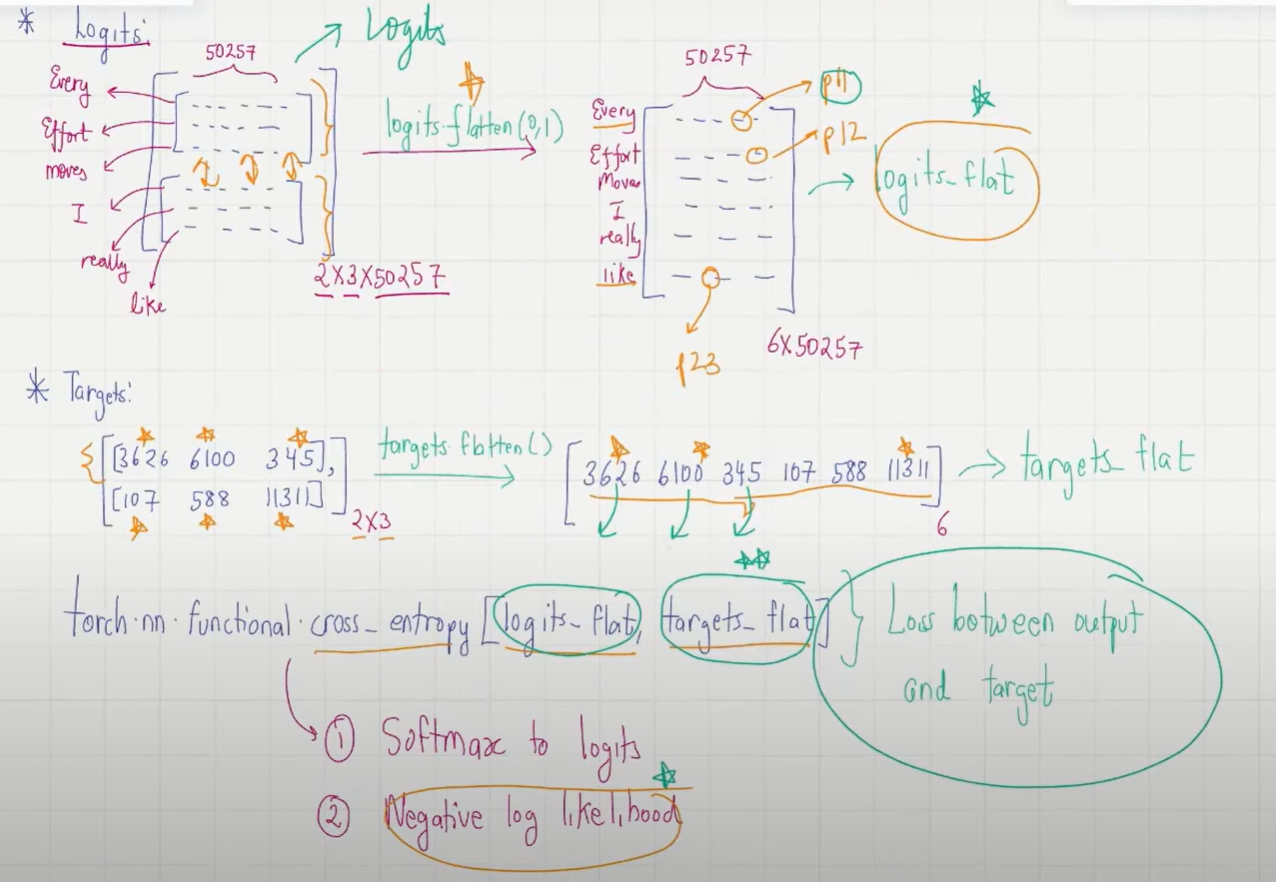 * Logits:
50257
Logits
Every
Effort
moves
I
really
like
2X3X50257
logits.flatten(0,1)
50257
p11
p12
Every
Effort
Moves
I
really
like
logits_flat
p23
6X50257
* Targets:
[[3626 6100 345],
[107 588 11311]]
2X3
targets.flatten()
[3626 6100 345 107 588 11311]
6
targets_flat
torch.nn.functional.cross_entropy [logits_flat, targets_flat]
Loss between output
and target
① Softmax to logits
② Negative log likelihood